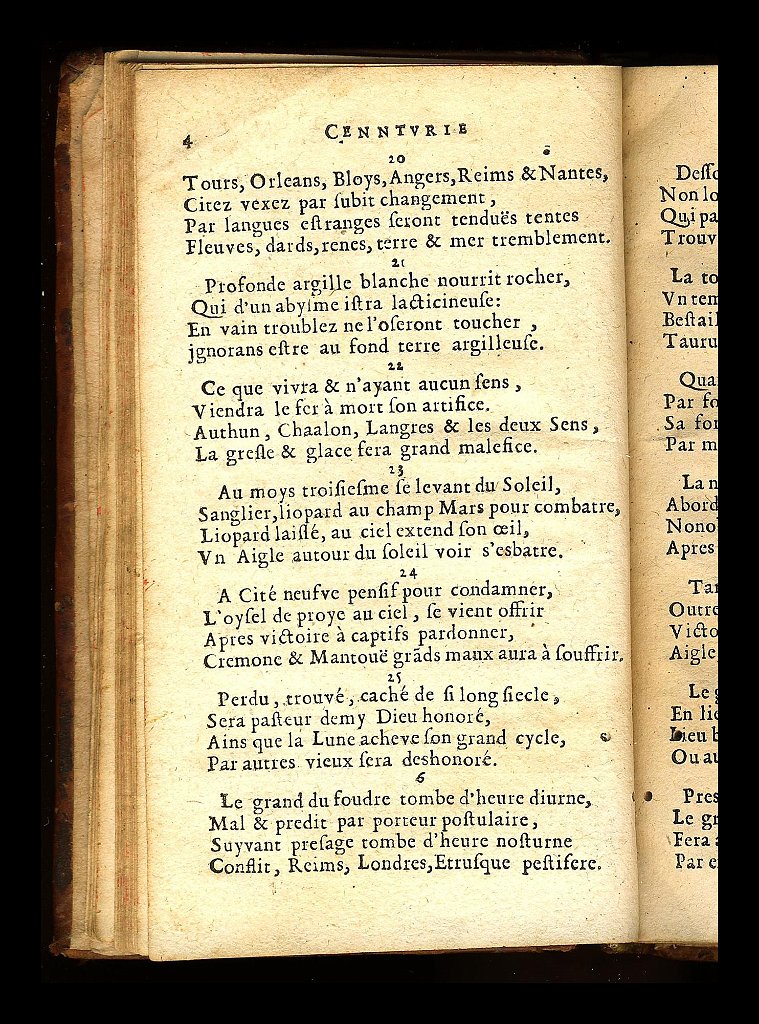 4 CENNTVRIE
20
Tours, Orleans, Bloys, Angers, Reims & Nantes,
Citez vexez par ſubit changement,
Par langues eſtranges ſeront tenduës tentes
Fleuves, dards, renes, terre & mer tremblement.
21
Profonde argille blanche nourrit rocher,
Qui d'un abyſme iſtra lacticineuſe:
En vain troublez ne l'oſeront toucher,
jgnorans eſtre au fond terre argilleuſe.
22
Ce que vivra & n'ayant aucun ſens,
Viendra le fer à mort ſon artifice.
Authun, Chaalon, Langres & les deux Sens,
La greſle & glace fera grand malefice.
23
Au moys troiſieſme ſe levant du Soleil,
Sanglier, liopard au champ Mars pour combatre,
Liopard laiſſé, au ciel extend ſon œil,
Vn Aigle autour du ſoleil voir s'esbatre.
24
A Cité neufve penſif pour condamner,
L'oyſel de proye au ciel, ſe vient offrir
Apres victoire à captifs pardonner,
Cremone & Mantouë grãds maux aura à ſouffrir.
25
Perdu, trouvé, caché de ſi long ſiecle,
Sera paſteur demy Dieu honoré,
Ains que la Lune acheve ſon grand cycle,
Par autres vieux ſera deshonoré.
6
Le grand du foudre tombe d'heure diurne,
Mal & predit par porteur poſtulaire,
Suyvant preſage tombe d'heure noſturne
Conflit, Reims, Londres, Etruſque peſtifere.
Non lo
Qui pa
Trouv
La to
Vn tem
Beſtail
Taurus
Qua
Par fo
Sa for
Par m
La n
Abord
Nono
Apres
Tar
Outre
Victo
Aigle
Le
En lie
Lieu b
Ou au
Pres
Le gr
Fera
Par e